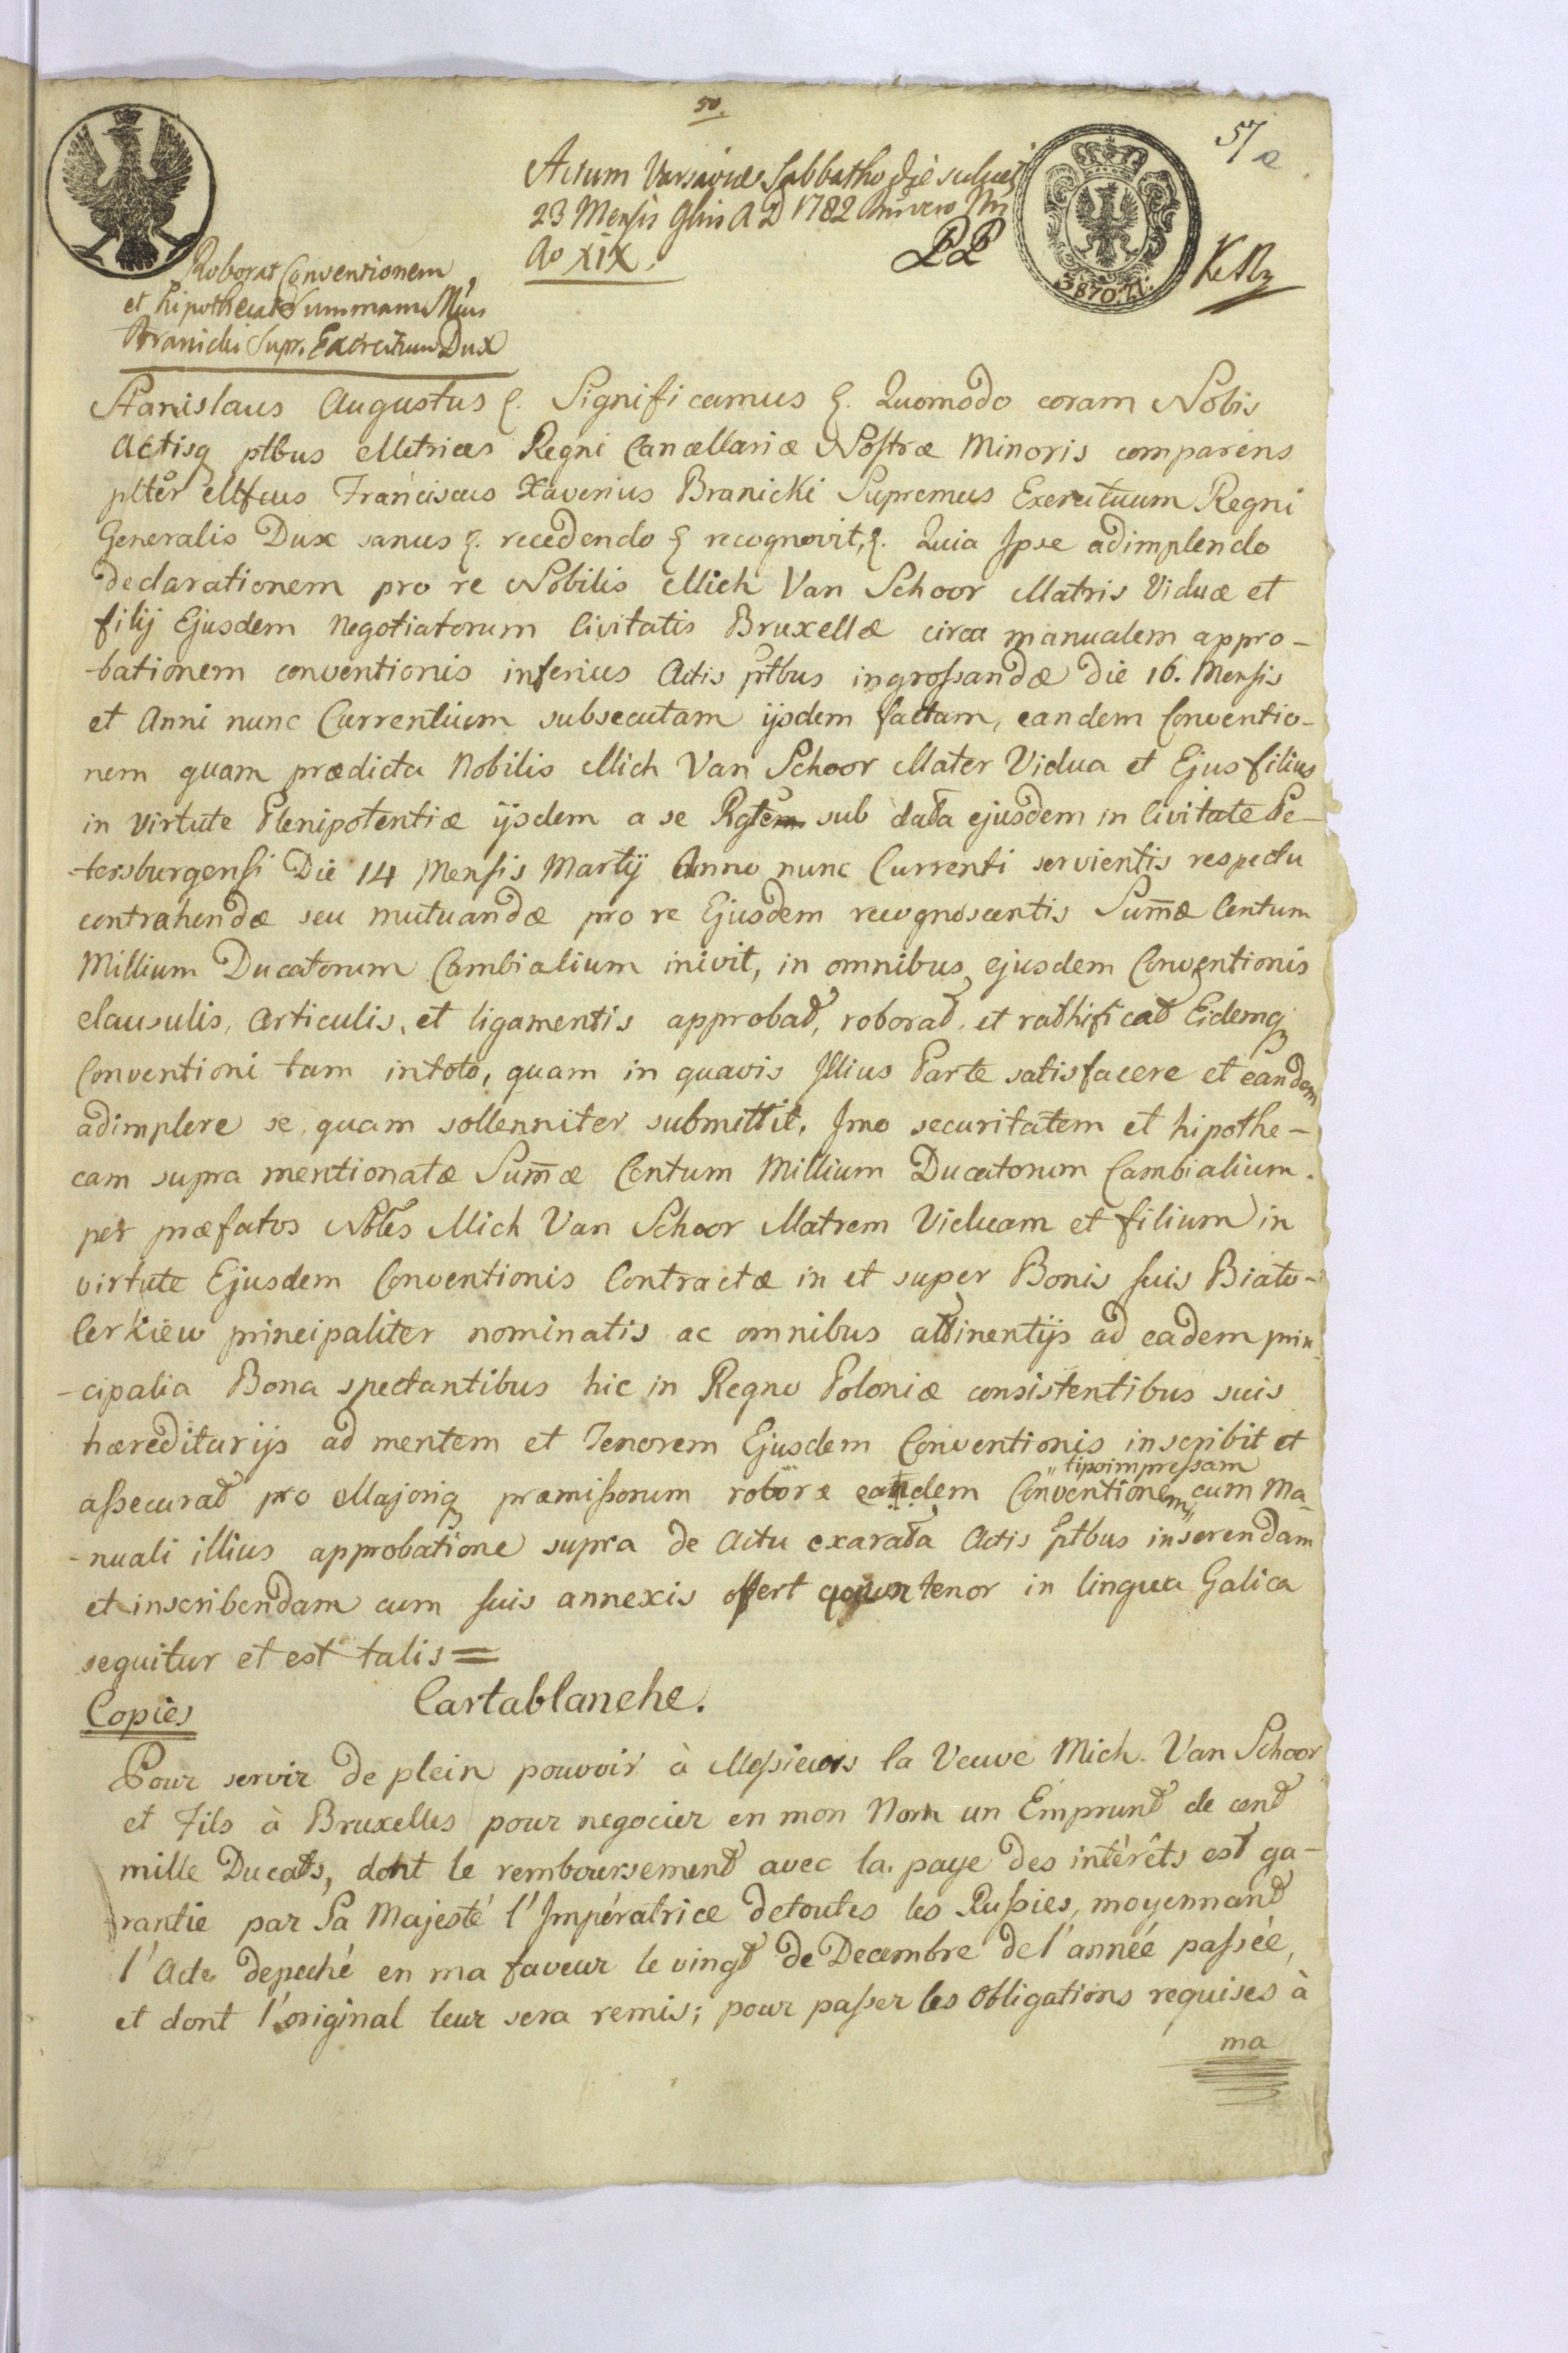 50.
57
a
Actum Varsaviæ Sabbatho die scilicet
23 Mensis 9bris A D 1782 anno vero
Ao XIX.
3870. Zł.
Roborat Conventionem
et hipothecat Summam
Branicki Supr. Exercituum Dux
Stanislaus Augustus &. Significamus &. Quomodo coram Nobis
Actisq ptbus Metrices Regni Cancellariæ Nostræ Minoris comparens
plter Mfcus Franciscus Xaverius Branicki Supremus Exercituum Regni
Generalis Dux sanus &. recedendo & recognovit, &. Quia Ipse adimplendo
declarationem pro re Nobilis Mich Van Schoor Matris Viduæ et
filij Ejusdem Negotiatorum Civitatis Bruxellæ circa manualem appro-
-bationem conventionis inferius Actis ptbus ingrossandæ Die 16. Mensis
et Anni nunc Currentium subsecutam ijsdem factam, eandem Conventio-
nem quam prædicta Nobilis Mich Van Schoor Mater Vidua et Ejus filius
in virtute Plenipotentiæ ijsdem a se sub data ejusdem in Civitate Pe-
-tersburgensi Die 14 Mensis Martij Anno nunc Currenti servientis respectu
contrahendæ seu mutuandæ pro re Ejusdem recognoscentis Sum̄æ Centum
Millium Ducatorum Cambialium inivit, in omnibus ejusdem Conventionis
clausulis, Articulis, et ligamentis approbat, roborat, et rathificat Eidemq
Conventioni tam intoto, quam in quavis Illius Parte satisfacere et eandem
adimplere se quam sollenniter submittit. Imo securitatem et hipothe-
cam supra mentionatæ Sum̄æ Centum Millium Ducatorum Cambialium.
per præfatos Nbles Mich Van Schoor Matrem Viduam et filium in
virtute Ejusdem Conventionis Contractæ in et super Bonis suis Biato-
Cerkiew principaliter nominatis ac omnibus attinentijs ad eadem prin-
-cipalia Bona spectantibus hic in Regno Poloniæ consistentibus suis
hæreditarijs ad mentem et Tenorem Ejusdem Conventionis inscribit et
assecurat pro Majoriq præmissorum robore eandem Conventionem "tipoimpressam" cum Ma-
-nuali illius approbatione supra de Actu exarata Actis ptbus inserendam
et inscribendam cum suis annexis offert tenor in lingua Galica
sequitur et est talis =
Copies Cartablanche.
Pour servir de plein pouvoir à Messieurs la Veuve Mich. Van Schoor
et Fils à Bruxelles pour negocier en mon Nom un Emprunt de cent
mille Ducats, dont le remboursement avec la paye des intérêts est ga-
rantie par Sa Majesté l'Impératrice detoutes les Russies, moyennant
l'Acte depeché en ma faveur le vingt de Decembre de l'année passée,
et dont l'original leur sera remis; pour passer les Obligations requises à
ma